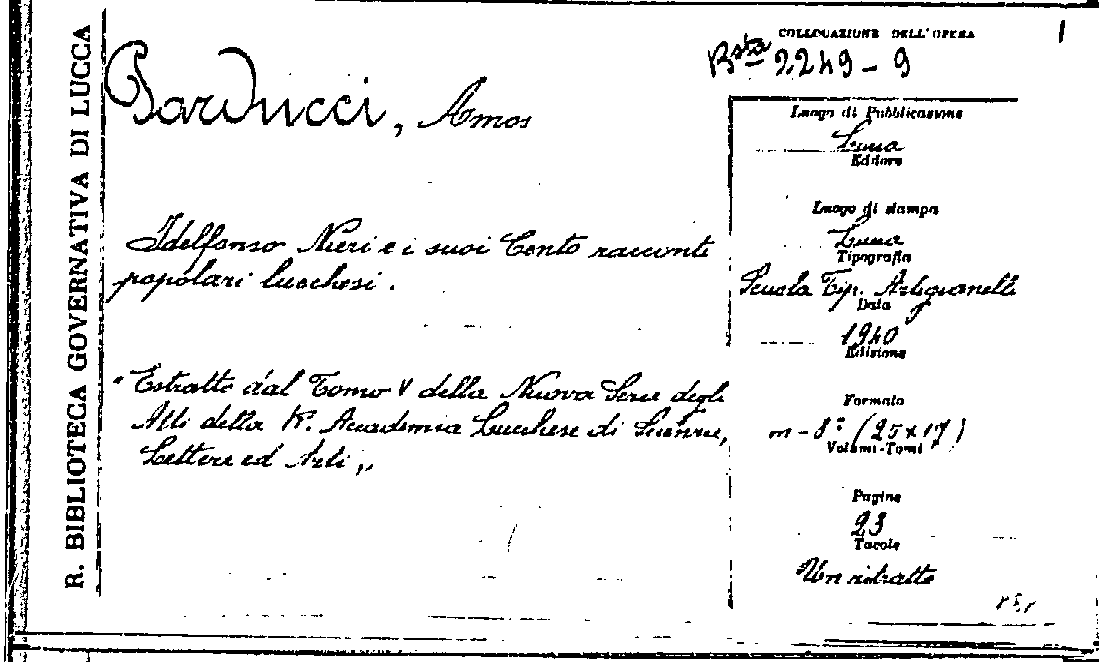 R. BIBLIOTECA GOVERNATIVA DI LUCCA
Parducci, Amos
Idelfonso Nieri e i suoi Cento racconti
popolari lucchesi.
"Estratto dal Tomo V della Nuova Serie degli
Atti della R. Accademia Lucchese di Scienze,
Lettere ed Arti"
COLLOCAZIONE DELL'OPERA
1
Bsta 2249-9
Luogo di Pubblicazione
Lucca
Editore
Luogo di stampa
Lucca
Tipografia
Scuola Tip. Artigianelli
Data
1940
Edizione
Formato
m-8° (25x17)
Volumi-Tomi
Pagine
23
Tavole
Un ritratto